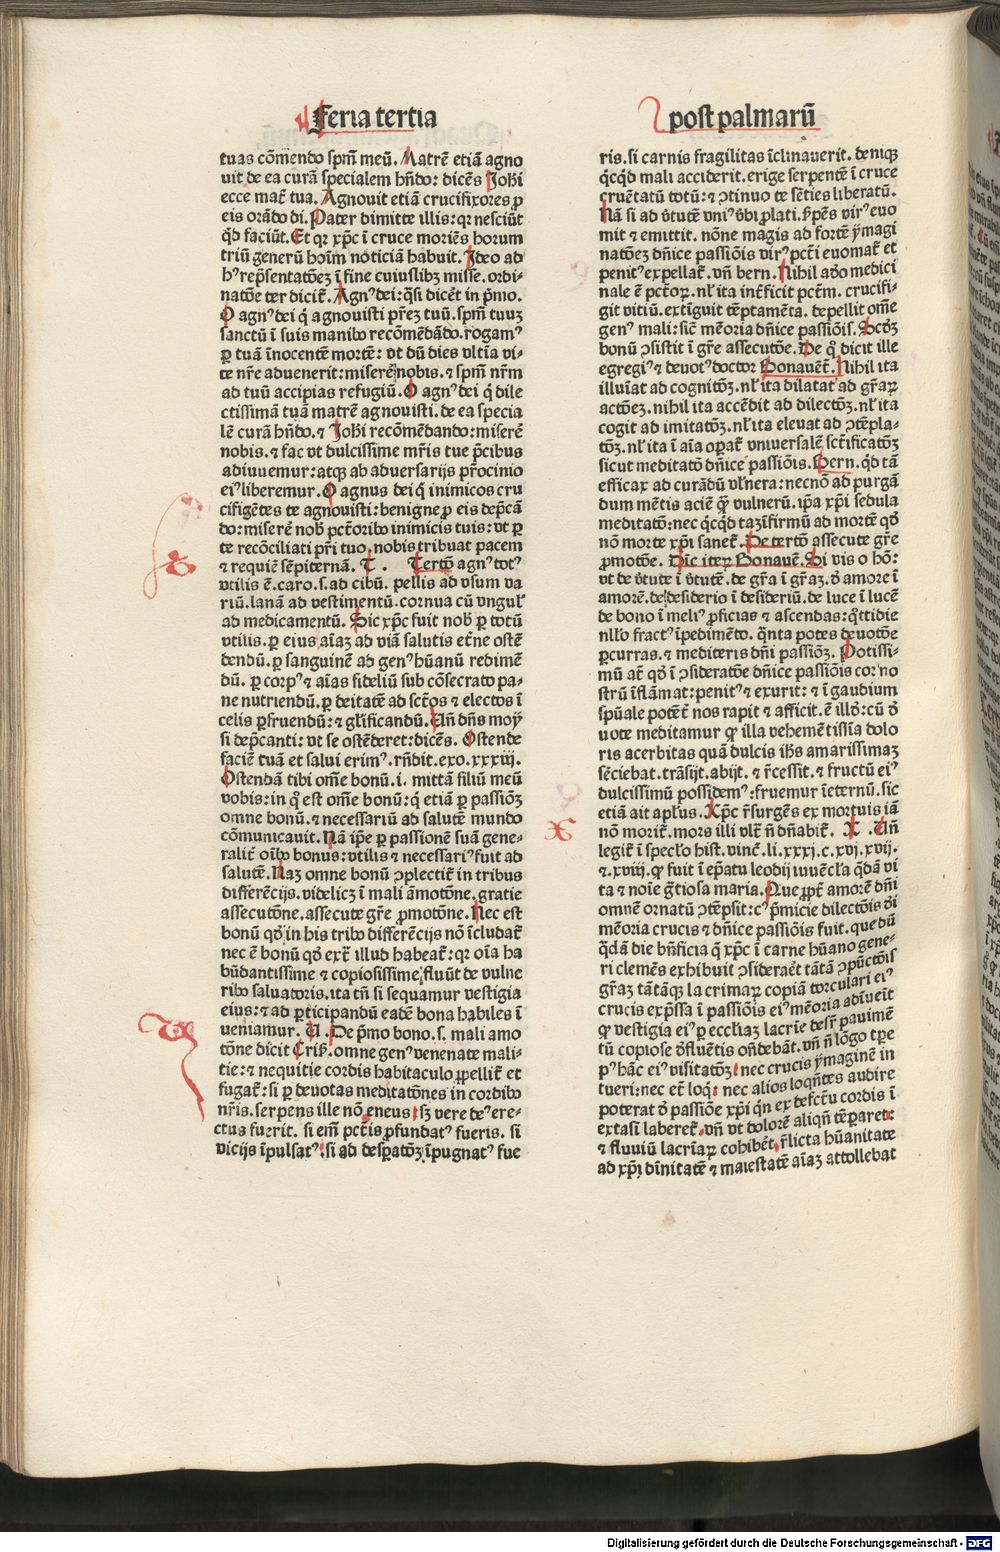 Feria tertia
post palmarū
tuas cōmendo spm̄ meū. Matrē etiā agno
uit de ea curā specialem hn̄do: dicēs Johi
ecce mat̄ tua. Agnouit etiā crucifixores ꝓ
eis orādo di. Pater dimitte illis: qr nesciūt
qd̄ faciūt. Et qr xp̄c ī cruce moriēs horum
triū generū hoīm noticiā habuit. Ideo ad
hꝰ rep̄sentatōeꝫ ī fine cuiuslibꝫ misse. ordi-
natōe ter dicit̄. Agnꝰ dei: q̄si dicēt in p̄mo.
O agnꝰ dei q̄ agnouisti p̄reꝫ tuū. spm̄ tuuꝫ
sanctū ī suis manibꝰ recōmēdādo. rogamꝰ
ꝑ tuā īnocentē mortē: vt dū dies vltīa vi-
te nr̄e aduenerit: miserē nobis. ⁊ spm̄ nr̄m
ad tuū accipias refugiū. O agnꝰ dei q̄ dile
ctissimā tuā matrē agnouisti. de ea specia
lē curā hn̄do. ⁊ Johi recōmēdando: miserē
nobis. ⁊ fac vt dulcissime mr̄is tue p̄cibus
adiuuemur: atqꝫ ab aduersarijs pr̄ocinio
eiꝰ liberemur. O agnus dei q̄ inimicos cru
cifigētes te agnouisti: benigne ꝓ eis dep̄cā
do: miserē nob̄ pctōribꝰ inimicis tuis: vt ꝑ
te recōciliati pr̄i tuo. nobis tribuat pacem
⁊ requiē sēpiternā. T. Tertō agnꝰ totꝰ
vtilis ē. caro .s. ad cibū. pellis ad vsum va
riū. lanā ad vestimentū. cornua cū vngul̄
ad medicamentū. Sic xp̄c fuit nob̄ ꝑ totū
vtilis. ꝑ eius aīaꝫ ad viā salutis etn̄e ostē
dendū. ꝑ sanguinē ad genꝰ hūanū redimē
dū. ꝑ corpꝰ ⁊ aīas fideliū sub cōsecrato pa-
ne nutriendū. ꝑ deitatē ad sct̄os ⁊ electos ī
celis ꝑfruendū: ⁊ gl̄ificandū. Un̄ dn̄s moy
si dep̄canti: vt se ostēderet: dicēs. Ostende
faciē tuā et salui erimꝰ. rn̄dit. exo. xxxiij.
Ostendā tibi om̄e bonū .i. mittā filiū meū
vobis: in q̄ est om̄e bonū: q̄ etiā ꝑ passiōꝫ
omne bonū. ⁊ necessariū ad salutē mundo
cōmunicauit. Nā ip̄e ꝑ passionē suā gene-
ralit̄ oībꝰ bonus: vtilis ⁊ necessariꝰ fuit ad
salutē. Naꝫ omne bonū ↄplectit̄ in tribus
differēcijs. videlicꝫ ī mali āmotōne. gratie
assecutōne. assecute gr̄e ꝓmotōne. Nec est
bonū qd̄ in his tribꝰ differēcijs nō īcludat̄
nec ē bonū qd̄ ext̄ illud habeat̄: qr oīa ha
būdantissime ⁊ copiosissime fluūt de vulne
ribꝰ saluatoris. ita tn̄ si sequamur vestigia
eius: ⁊ ad ꝑticipandū eadē bona habiles ī
ueniamur. U. De p̄mo bono .s. mali amo
tōne dicit Crisꝰ. omne genꝰ venenate mali-
tie: ⁊ nequitie cordis habitaculo ꝓpellit̄ et
fugat̄: si ꝑ deuotas meditatōnes in cordibꝰ
nr̄is. serpens ille nō eneus: sꝫ vere deꝰ ere-
ctus fuerit. si em̄ pct̄is ꝓfundatꝰ fueris. si
vicijs īpulsatꝰ: si ad desꝑatōꝫ īpugnatꝰ fue
ris. si carnis fragilitas īclinauerit. deniqꝫ
qc̄qd̄ mali acciderit. erige serpentē ī cruce
cruētatū totū: ⁊ ↄtinuo te sēties liberatū.
Nā si ad v̄tutē vniꝰ v̄bi ꝓlati. s̄pēs virꝰ euo
mit ⁊ emittit. nōne magis ad fortē ymagi
natōeꝫ dn̄ice passiōis virꝰ pct̄i euomat̄ et
penitꝰ expellat̄. vn̄ bern. Nihil adeo medici
nale ē pct̄oꝝ. nl̄ ita int̄ficit pct̄m. crucifi-
git vitiū. extīguit tēptamēta. depellit om̄e
genꝰ mali: sic̄ mēoria dn̄ice passiōis. Scd̄ꝫ
bonū ↄsistit ī gr̄e assecutōe. De q̄ dicit ille
egregiꝰ ⁊ deuotꝰ doctor Bonauēt̄. Nihil ita
illuīat ad cognitōꝫ. nl̄ ita dilatat ad gr̄aꝝ
actōeꝫ. nihil ita accēdit ad dilectōꝫ. nl̄ ita
cogit ad imitatōꝫ. nl̄ ita eleuat ad ↄtēpla-
tōꝫ. nl̄ ita ī aīa oꝑat̄ vniuersalē sct̄ificatōꝫ
sicut meditatō dn̄ice passiōis. Bern. qd̄ tā
efficax ad curādū vl̄nera: necnō ad purgā
dum mētis aciē q̄ꝫ vulnerū. ip̄a xp̄i sedula
meditatō: nec qc̄qd̄ tā īfirmū ad mortē qd̄
nō morte xp̄i sanet̄. De tertō assecute gr̄e
ꝓmotōe. Dic̄ iteꝝ Bonauē. Si vis o hō:
vt de v̄tute ī v̄tutē. de gr̄a ī gr̄aꝫ. d̄ amore ī
amorē. de desiderio ī desideriū. de luce ī lucē
de bono ī meliꝰ ꝓficias ⁊ ascendas: q̄ttidie
nllo fractꝰ īpedimēto. q̄nta potes deuotōe
ꝑcurras. ⁊ mediteris dn̄i passiōꝫ. Potissi-
mū at̄ qd̄ ī ↄsideratōe dn̄ice passiōis cor no
strū īflāmat: penitꝰ ⁊ exurit: ⁊ ī gaudium
spūale potēt̄ nos rapit ⁊ afficit. ē illd̄: cū d̄
uote meditamur qꝫ illa vehemētissīa dolo
ris acerbitas quā dulcis ih̄s amarissimaꝫ
sēciebat. trāsijt. abijt. ⁊ r̄cessit. ⁊ fructū eiꝰ
dulcissimū possidemꝰ: fruemur īeternū. sic
etiā ait apl̄us. Xp̄c r̄surgēs ex mortuis iā
nō morit̄. mors illi vlt̄ n̄ dn̄abit̄. X. Un̄
legit̄ ī specl̄o hist. vinc̄. li. xxxj. c. xvj. xvij.
⁊. xviij. qꝫ fuit ī ep̄atu leodij iuuēcl̄a q̄dā vi
ta ⁊ noīe gr̄tiosa maria. Que ꝓpt̄ amorē dn̄i
omnē ornatū ↄtēpsit: cꝰ p̄micie dilectōis d̄i
mēoria crucis ⁊ dn̄ice passiōis fuit. que dū
q̄dā die bn̄ficia q̄ xp̄c ī carne hūano gene-
ri clemēs exhibuit ↄsideraēt tātā ↄpūctōis
gr̄aꝫ tātāqꝫ lacrimaꝝ copiā torculari eiꝰ
crucis exp̄ssa ī passiōis eiꝰ mēoria adīueīt
qꝫ vestigia eiꝰ ꝑ ecclīaꝫ lacrīe desꝑ pauimē
tū copiose d̄fluētis on̄debāt. vn̄ n̄ lōgo tꝑe
pꝰ hāc eiꝰ visitatōꝫ: nec crucis ymaginē in
tueri: nec et̄ loq̄: nec alios loqn̄tes audire
poterat d̄ passiōe xp̄i qn̄ ex defctū cordis ī
extasī laberet̄. vn̄ vt dolorē aliqn̄ tēꝑaret:
⁊ fluuiū lacrīaꝝ cohibēt. r̄licta hūanitate
ad xp̄i dīnitatē ⁊ maiestatē aīaꝫ attollebat
Digitalisierung gefördert durch die Deutsche Forschungsgemeinschaft - DFG